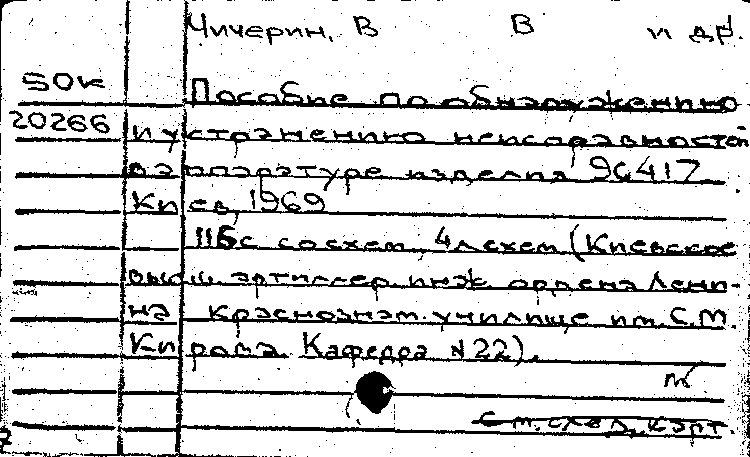 Чичерин, В В и др.
50к
Пособие по обнаружению
20266
и устранению неисправностей
в аппаратуре изделия 9С417
Киев, 1969
116с со схем, 4л схем (Киевское
высш артиллер инж ордена Лени-
на Краснознам. училище им. С.М.
Кирова. Кафедра №22).
См. след. карт.